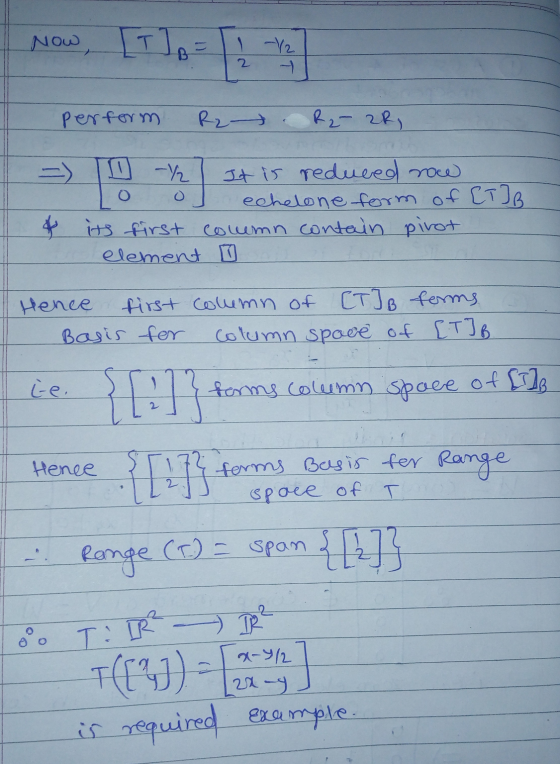 Now, [T]B = [1 -1/2
2 -1]
perform R2 → R2 - 2R1
⇒ [1 -1/2 It is reduced row
0 0] echelone form of [T]B
& its first column contain pivot
element 1
Hence first column of [T]B forms
Basis for column space of [T]B
i.e. {[1
2]} forms column space of [T]B
Hence {[1
2]} forms Basis for Range
space of T
∴ Range (T) = span {[1
2]}
∴ T: ℝ² → ℝ²
T([x
y]) = [x-y/2
2x-y]
is required example.